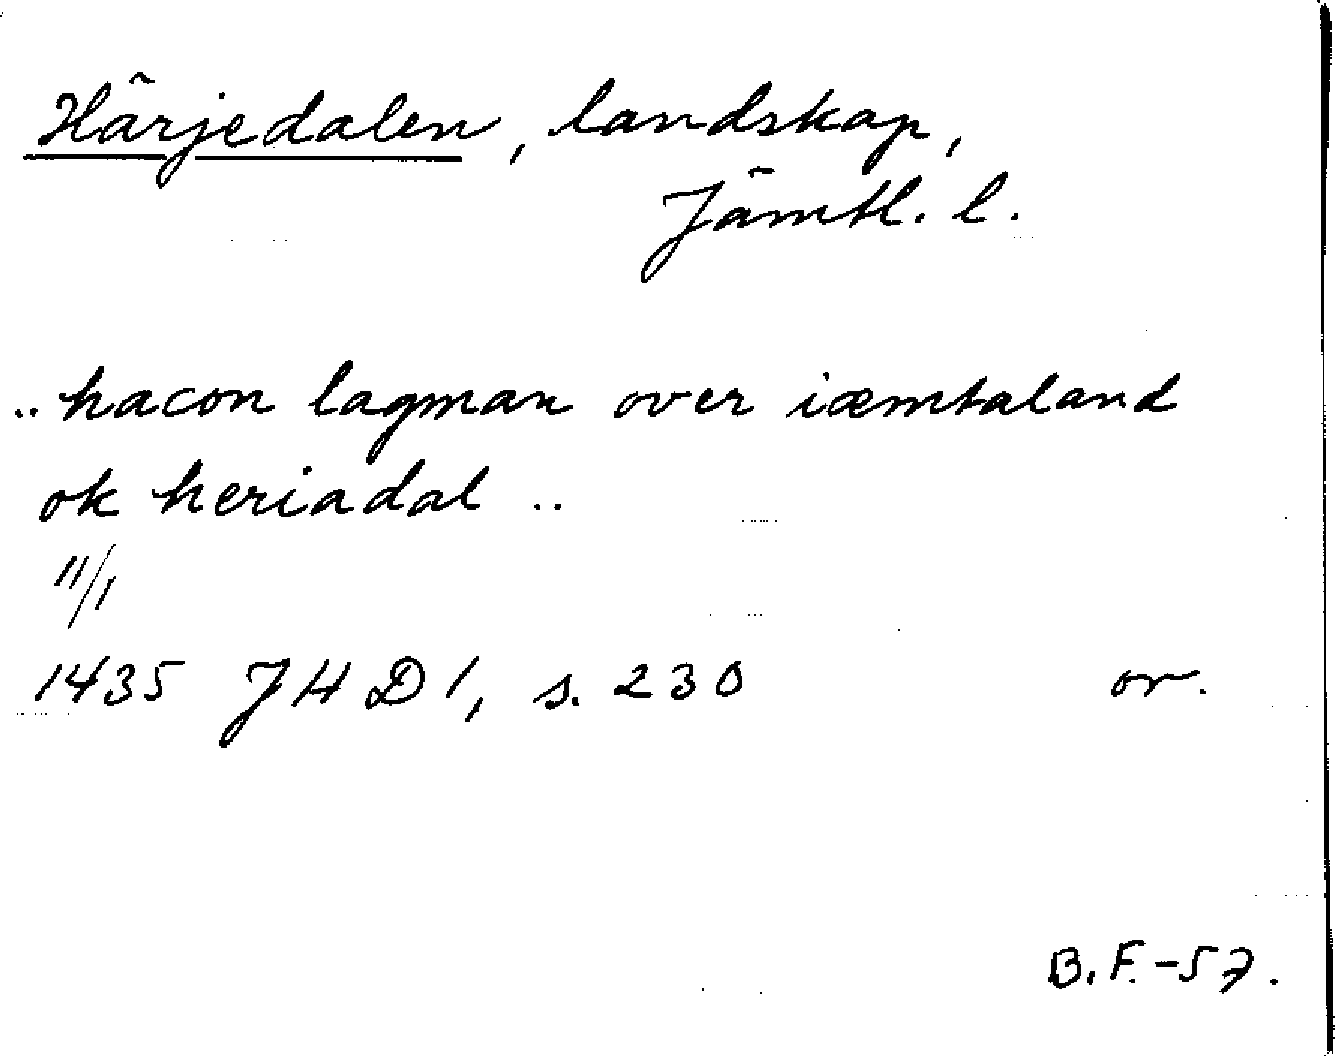 Härjedalen, landskap,
Jämtl. l.
.. hacon lagman over iæmtaland
ok heriadal ..
11/1
1435 JHD 1, s. 230 or.
B.F.-57.